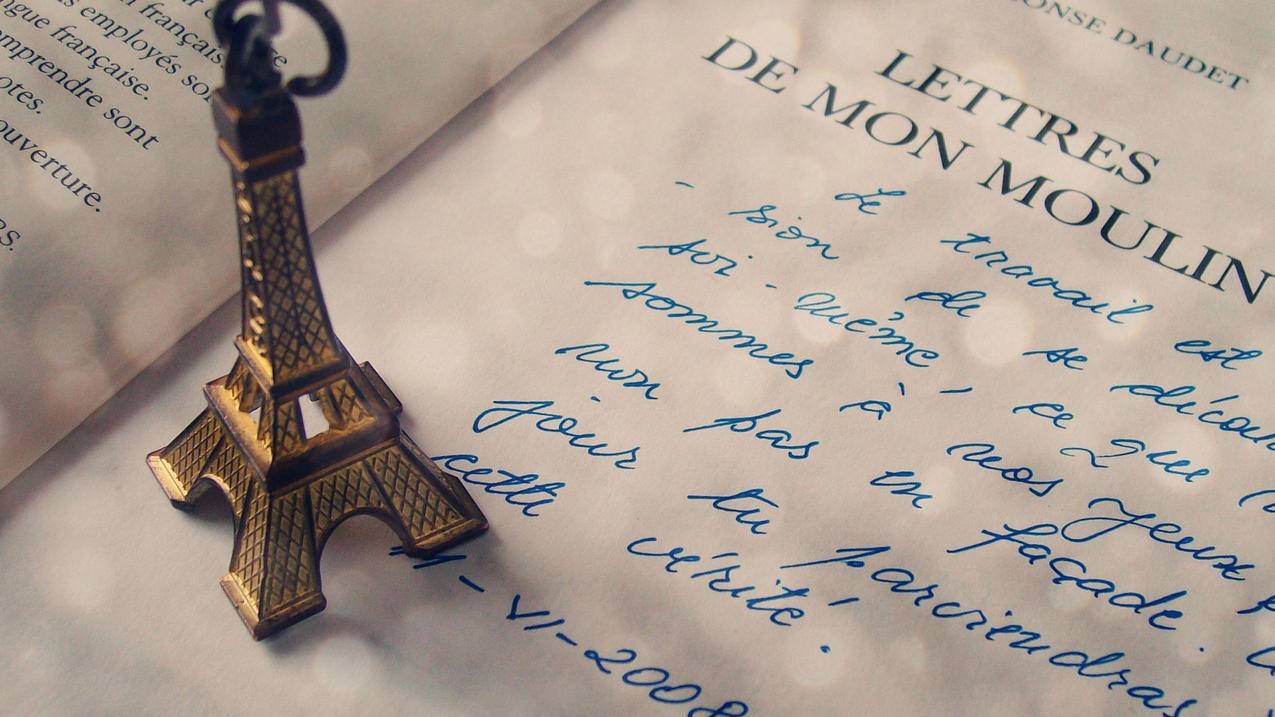 français
employés
française.
sont
ONSE DAUDET
LETTRES
DE MON MOULIN
- Le travail est
sion de se décou
soi-même, ce que
sommes à nos yeux
non pas en façade.
jour tu parviendras
cette vérité.
VI-2008